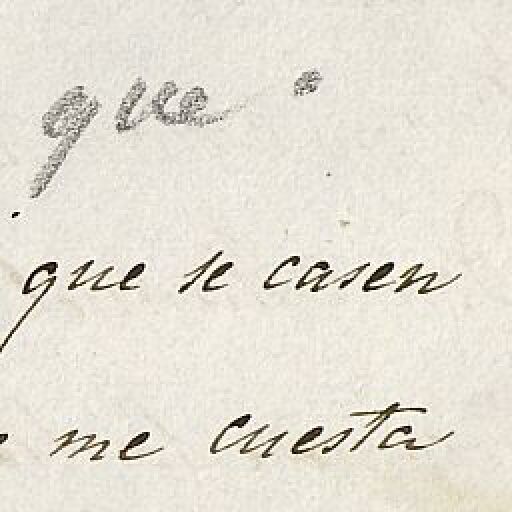 que
que se casen
me cuesta